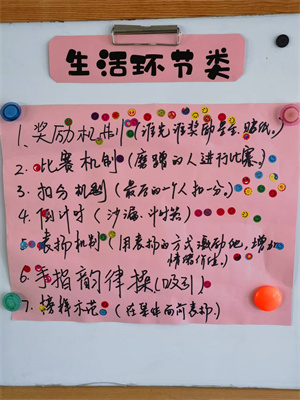 生活环节类
1、奖励机制(谁先谁奖励子、贴纸。)
2、比赛机制(磨蹭的人进行比赛。)
3、扣分机制(最后的一个人扣一分。)
4、倒计时(沙漏、计时器)
5、表扬机制(用表扬的方式激励他,增加
情绪价值。)
6、手指韵律操(吸引)
7、榜样示范(在集体面前表扬。)